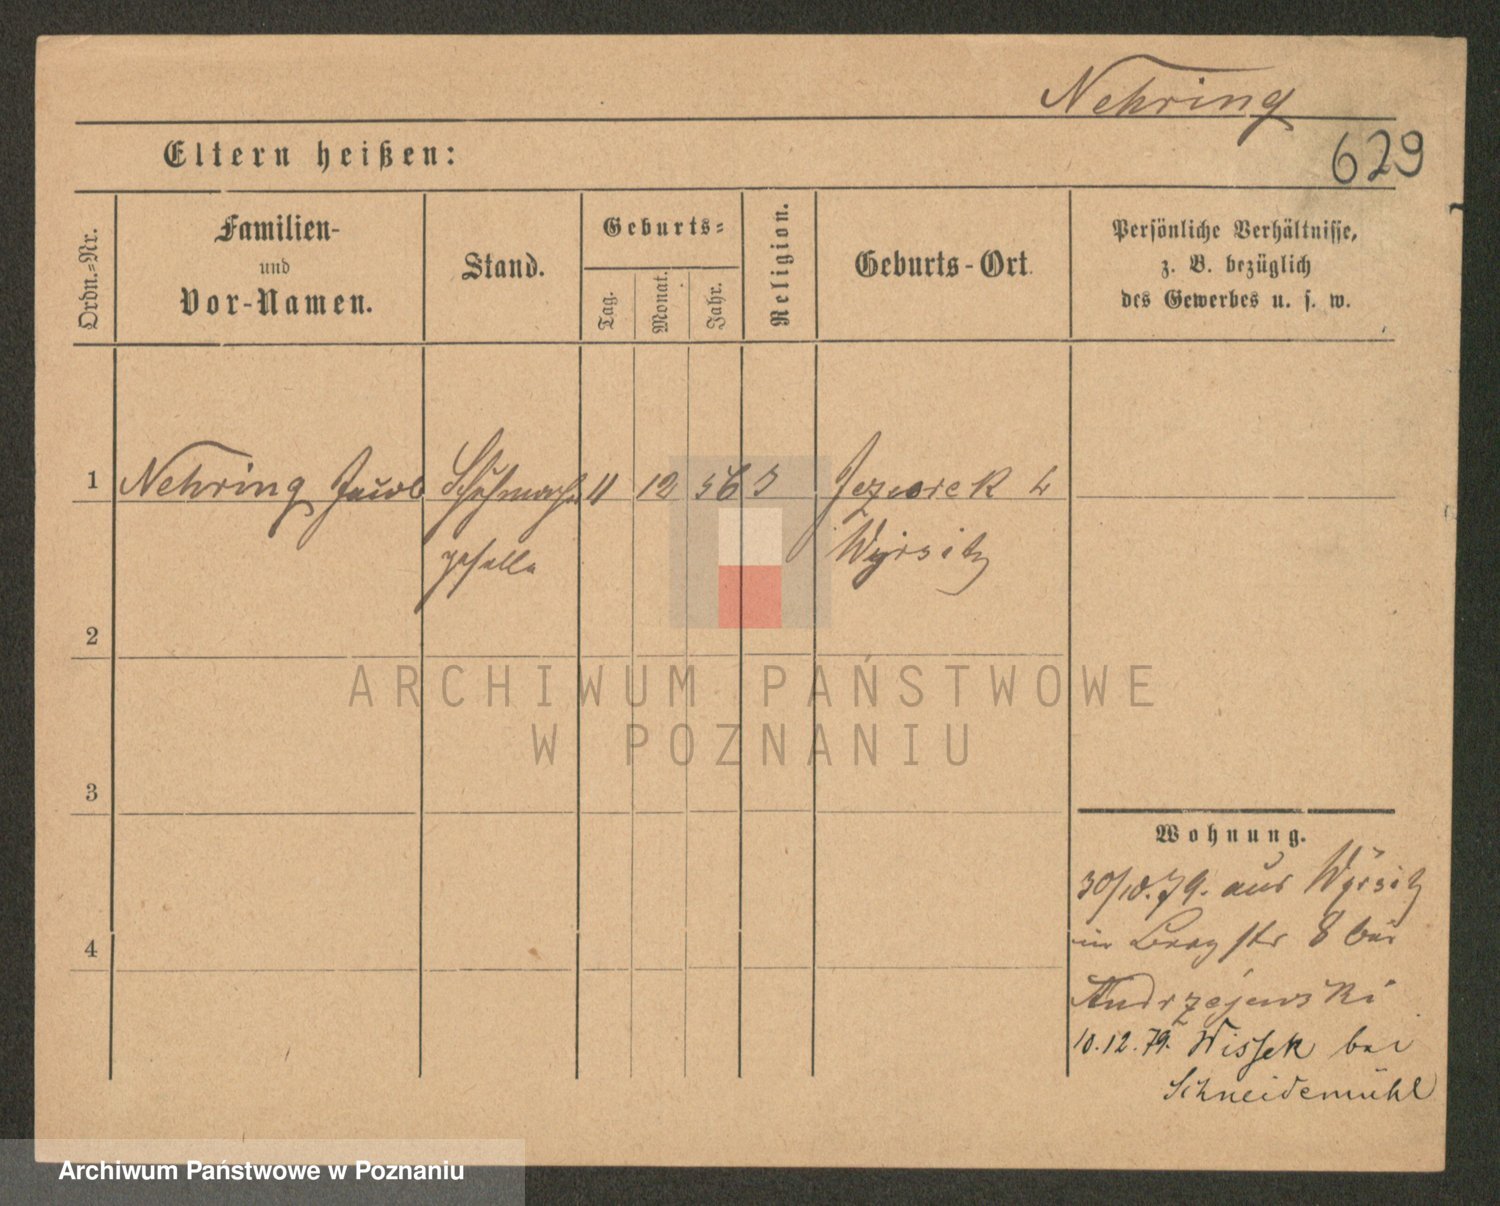 Nehring
629
Eltern heißen:
Ordn.=Nr.
Familien-
und
Vor-Namen.
Stand.
Geburts=
Tag.
Monat.
Jahr.
Religion.
Geburts-Ort.
Persönliche Verhältnisse,
z. B. bezüglich
des Gewerbes u. s. w.
1 Nehring Jacob Schuhmacher 11 12 56
geselle Wyrsitz
2
3
4
ARCHIWUM PAŃSTWOWE
W POZNANIU
Wohnung.
30/10.79. aus Wyrsitz
in Berg str 8 bei
Andrzejewski
10.12.79. Wissek bei
Schneidemühl
Archiwum Państwowe w Poznaniu